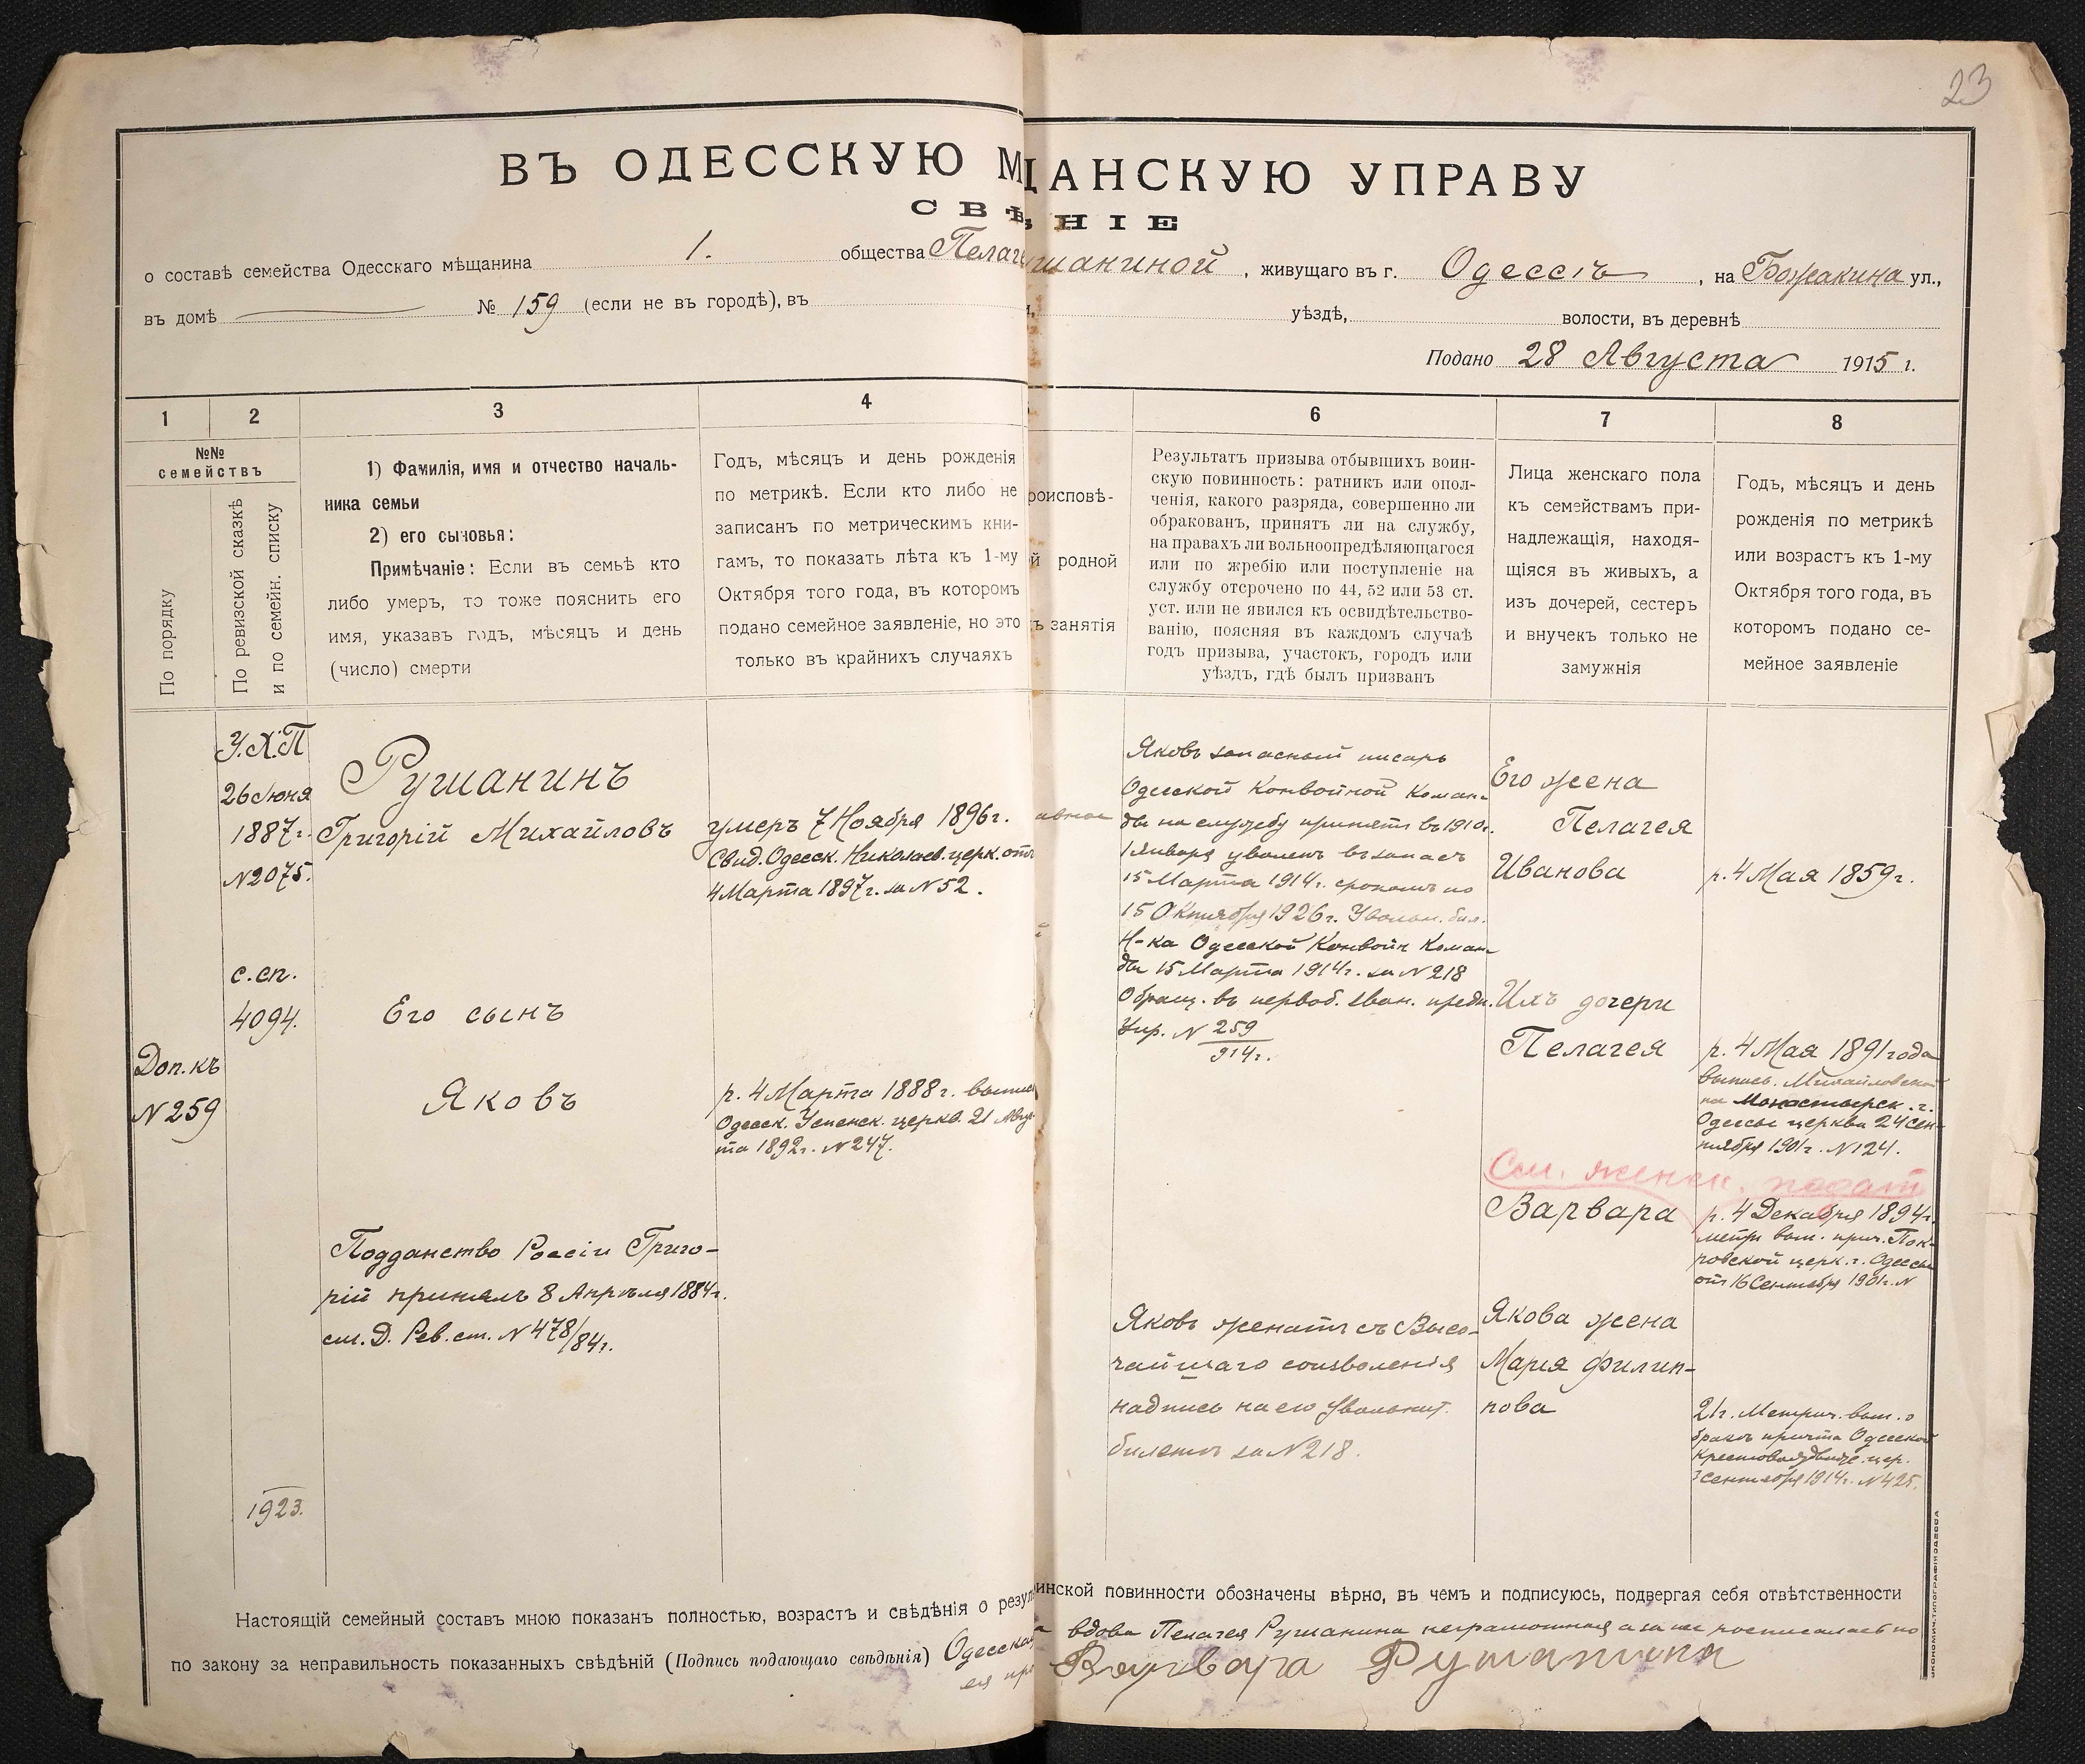 23
ВЪ ОДЕССКУЮ М ЩАНСКУЮ УПРАВУ
СВѢ НІЕ
о составѣ семейства Одесскаго мѣщанина 1. общества Пелаге ушаниной, живущаго въ г. Одессѣ, на Божакина ул.,
въ домѣ № 159 (если не въ городѣ), въ уѣздѣ, волости, въ деревнѣ
Подано 28 Августа 1915 г.
1
2
3
4
6
7
8
№№
семействъ
По порядку
По ревизской сказкѣ
и по семейн. списку
1) Фамилія, имя и отчество началь-
ника семьи
2) его сыновья:
Примѣчаніе: Если въ семьѣ кто
либо умеръ, то тоже пояснить его
имя, указавъ годъ, мѣсяцъ и день
(число) смерти
Годъ, мѣсяцъ и день рожденія
по метрикѣ. Если кто либо не
записанъ по метрическимъ кни-
гамъ, то показать лѣта къ 1-му
Октября того года, въ которомъ
подано семейное заявленіе, но это
только въ крайнихъ случаяхъ
роисповѣ-
й родной
ъ занятія
Результатъ призыва отбывшихъ воин-
скую повинность: ратникъ или опол-
ченія, какого разряда, совершенно ли
обракованъ, принятъ ли на службу,
на правахъ ли вольноопредѣляющагося
или по жребію или поступленіе на
службу отсрочено по 44, 52 или 53 ст.
уст. или не явился къ освидѣтельство-
ванію, поясняя въ каждомъ случаѣ
годъ призыва, участокъ, городъ или
уѣздъ, гдѣ былъ призванъ
Лица женскаго пола
къ семействамъ при-
надлежащія, находя-
щіяся въ живыхъ, а
изъ дочерей, сестеръ
и внучекъ только не
замужнія
Годъ, мѣсяцъ и день
рожденія по метрикѣ
или возрастъ къ 1-му
Октября того года, въ
которомъ подано се-
мейное заявленіе
Доп. къ
№ 259
У.Х.П
26 Іюня
1887 г.
№ 2075.
с. сп.
4094.
1923.
Рушанинъ
Григорій Михайловъ
Его сынъ
Яковъ
Подданство Россіи Григо-
рій принялъ 8 Апрѣля 1884 г.
см. Д. Рев. ст. № 478/84 г.
умеръ 7 Ноября 1896 г.
Свид. Одесск. Николаев. церк. отъ
4 Марта 1897 г. за № 52.
р. 4 Марта 1888 г. выпись
Одесск. Успенск. церкв. 21 Авгу-
та 1892 г. № 247.
авное
Яковъ запасный писарь
Одесской Конвойной Коман-
ды на службу принятъ въ 1910 г.
1 Января уволенъ въ запасъ
15 Марта 1914 г. срокомъ по
15 Октября 1926 г. Увольн. бил.
Н-ка Одесской Конвойн Коман-
ды 15 Марта 1914 г. за № 218
Обращ. въ первоб. зван. предп.
Упр. № 259
914 г.
Яковъ женатъ съ Высо-
чайшаго соизволенія
надпись на его Увольнит.
билетѣ за № 218.
Его жена
Пелагея
Иванова
Ихъ дочери
Пелагея
См. женск. подат
Варвара
Якова жена
Марія Филип-
пова
р. 4 Мая 1859 г.
р. 4 Мая 1891 года
выпись. Михайловской
на Монастырск. г.
Одессы церкви 24 Сен-
тября 1901 г. № 124.
р. 4 Декабря 1894 г.
метр. вып. прич. Пок-
ровской церк. г. Одессы
отъ 16 Сентября 1901 г. №
21 г. Метрич. вып. о
бракѣ причта Одесской
Крестовоздвиж. цер.
Сентября 1914 г. № 425.
Настоящій семейный составъ мною показанъ полностью, возрастъ и свѣдѣнія о резул инской повинности обозначены вѣрно, въ чемъ и подписуюсь, подвергая себя отвѣтственности
по закону за неправильность показанныхъ свѣдѣній (Подпись подающаго свѣдѣнія) Одесская вдова Пелагея Рушанина неграмотная а за нее росписалась по
ея пр Варвара Рушанина
ЭКОНОМИЧ. ТИПОГРАФІЯ ОДЕССА